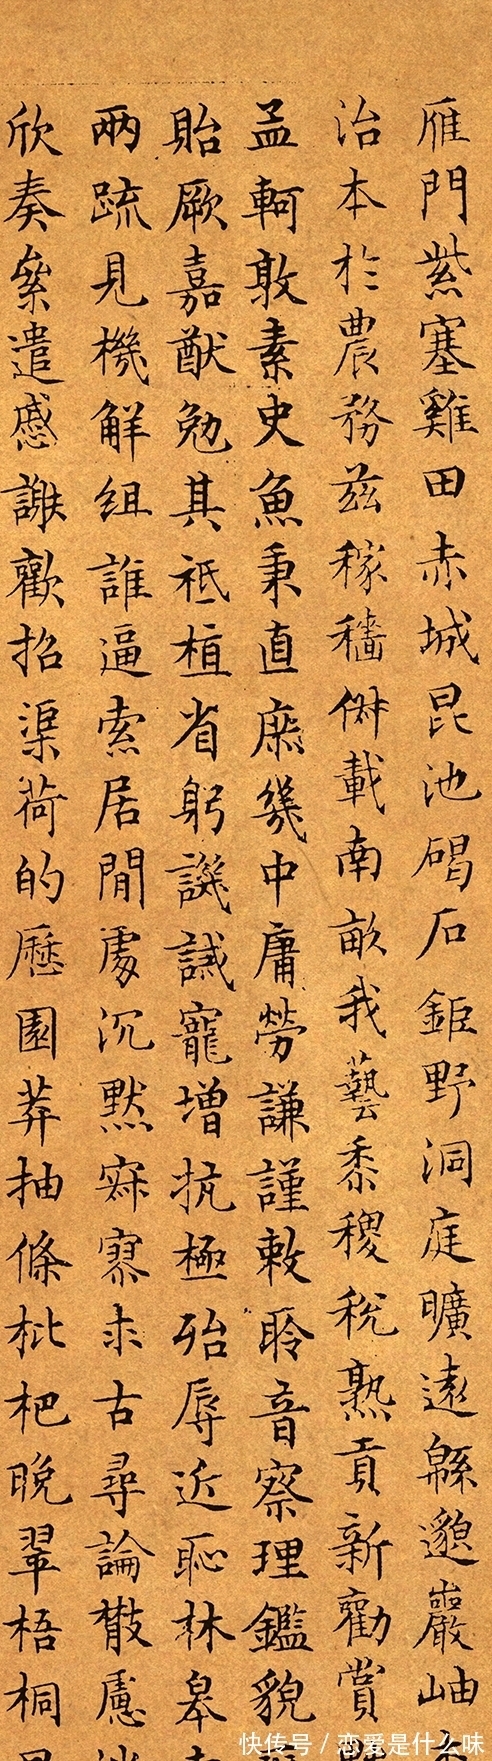 雁門紫塞雞田赤城昆池碣石鉅野洞庭曠遠緜邈巖岫
治本於農務茲稼穡俶載南畝我藝黍稷稅熟貢新勸賞
孟軻敦素史魚秉直庶幾中庸勞謙謹敕聆音察理鑑貌
貽厥嘉猷勉其祗植省躬譏誡寵增抗極殆辱近恥林皋
兩疏見機解組誰逼索居閒處沉默寂寥求古尋論散慮
欣奏累遣慼謝歡招渠荷的歷園莽抽條枇杷晚翠梧桐
快传号/恋爱是什么味